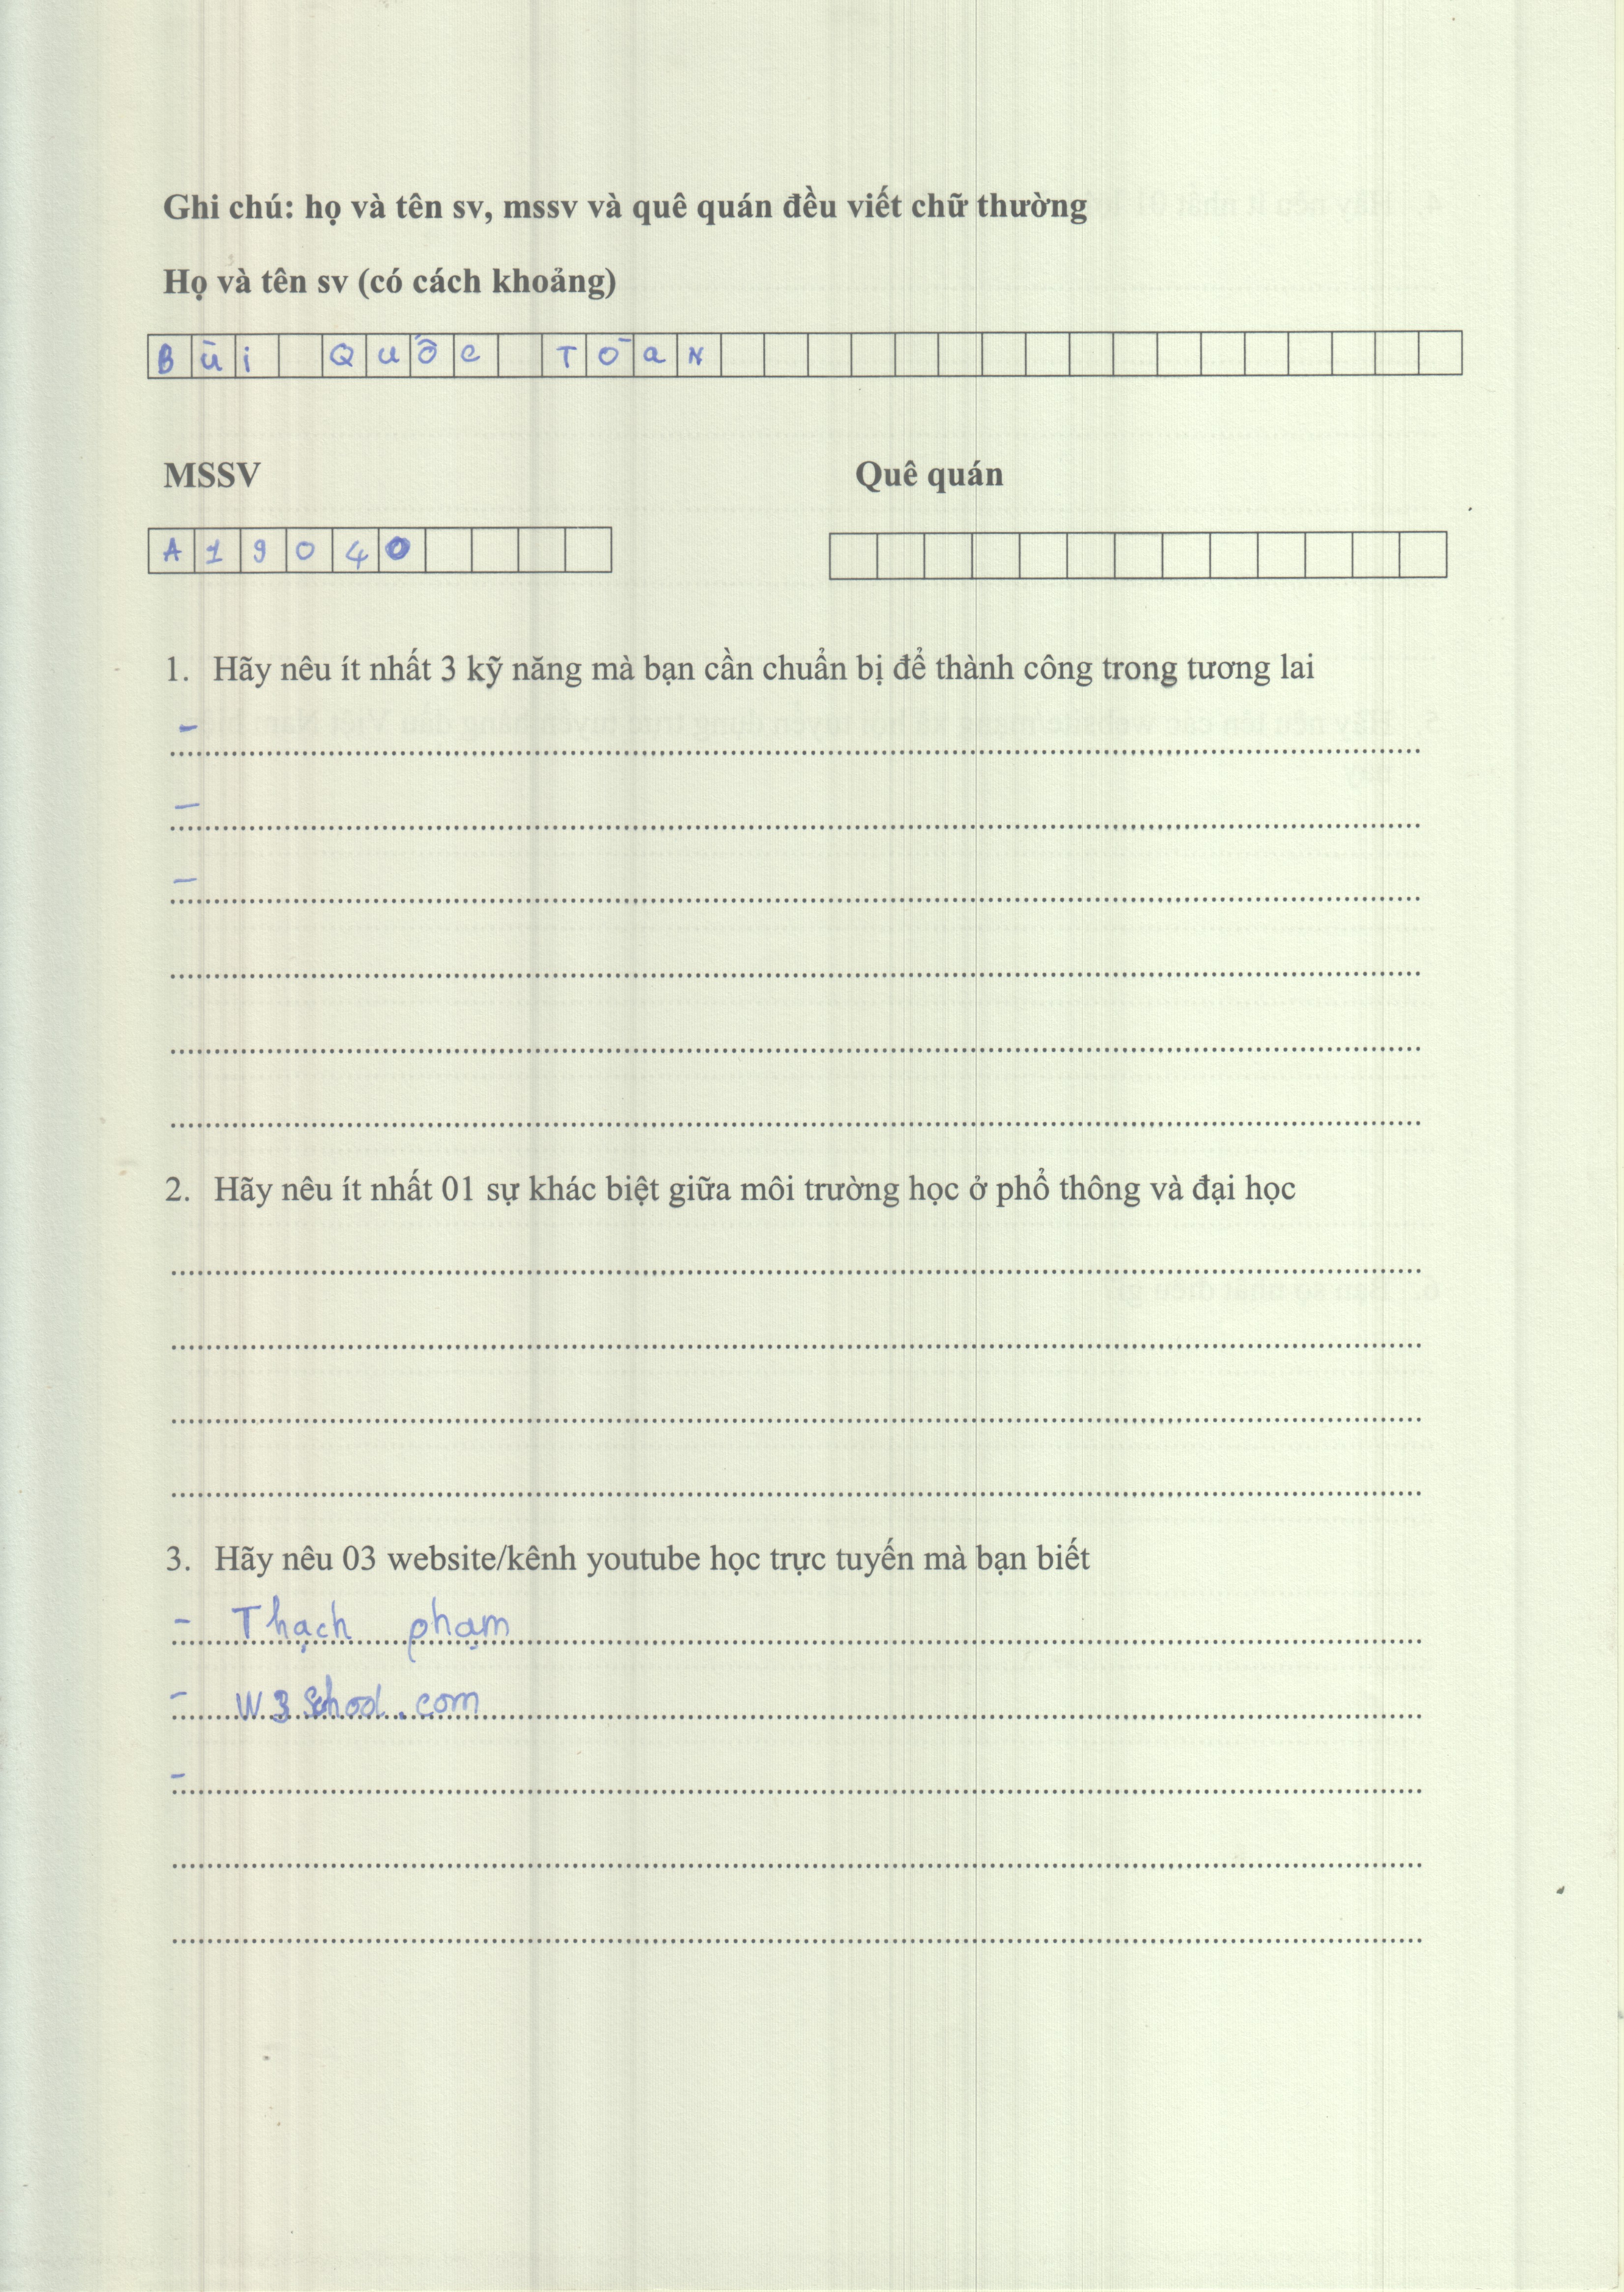 Ghi chú: họ và tên sv, mssv và quê quán đều viết chữ thường
Họ và tên sv (có cách khoảng)
Bùi Quốc Tòan
MSSV Quê quán
A19040
1. Hãy nêu ít nhất 3 kỹ năng mà bạn cần chuẩn bị để thành công trong tương lai
-
-
-
2. Hãy nêu ít nhất 01 sự khác biệt giữa môi trường học ở phổ thông và đại học
3. Hãy nêu 03 website/kênh youtube học trực tuyến mà bạn biết
- Thạch phạm
- W3School.com
-